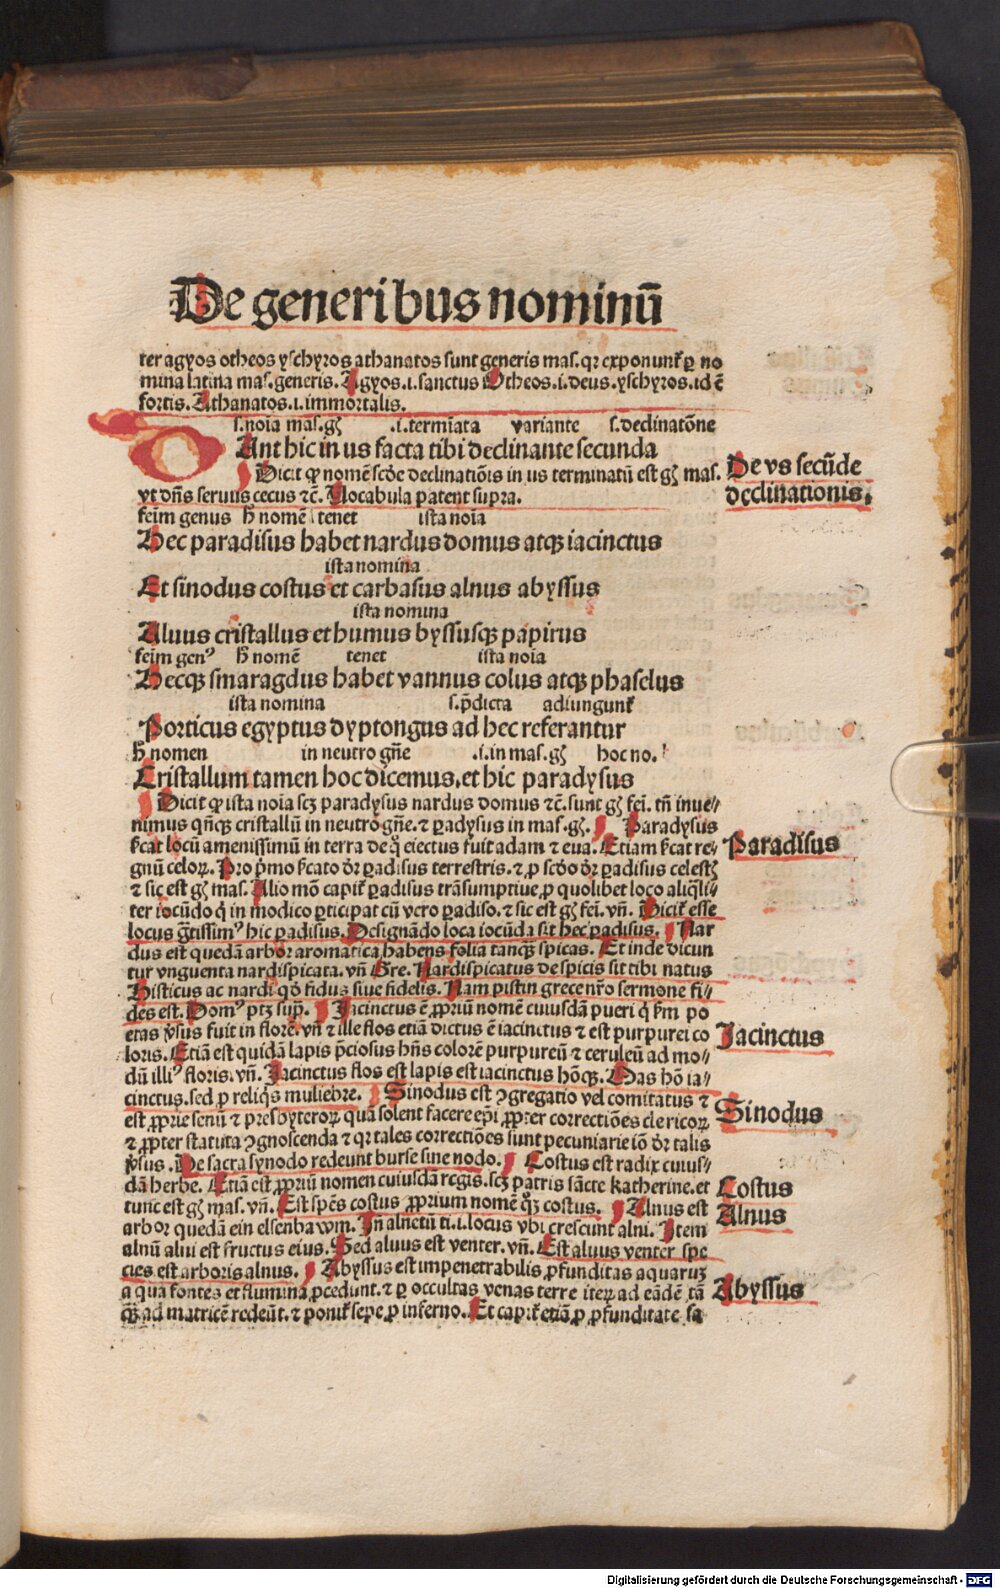 De generibus nominū
ter agyos otheos yschyros athanatos sunt generis mas. qr exponunt̃ ꝑ no
mina latina mas. generis. Agyos .i. sanctus Otheos .i. deus. yschyros .id ē
fortis. Athanatos .i. immortalis.
s. noīa mas. gn̄ .i. termīata variante s. declinatōne
Ant hic in us facta tibi declinante secunda
Dicit ꝙ nomē scd̄e declinatiōis in us terminatū est gn̄ mas.
De vs secūde
declinationis.
vt dn̄s seruus cecus ⁊c̄. Vocabula patent supra.
feīm genus h̄ nomē tenet ista noīa
Hec paradisus habet nardus domus atqꝫ iacinctus
ista nomina
Et sinodus costus et carbasus alnus abyssus
ista nomina
Aluus cristallus et humus byssusqꝫ papirus
feīm genꝰ h̄ nomē tenet ista noīa
Hecqꝫ smaragdus habet vannus colus atqꝫ phaselus
ista nomina s. p̄dicta adiungunt̃
Porticus egyptus dyptongus ad hec referantur
h̄ nomen in neutro gn̄e .i. in mas. gn̄ hoc no.
Cristallum tamen hoc dicemus. et hic paradysus
Dicit ꝙ ista noīa scꝫ paradysus nardus domus ⁊c̄. sunt gn̄ feī. tn̄ inue⸗
nimus qn̄qꝫ cristallū in neutro gn̄e. ⁊ ꝑadysus in mas. gn̄. Paradysus
Paradisus
ſ̄cat locū amenissimū in terra de q̊ eiectus fuit adam ⁊ eua. Etiam ſ̄cat re⸗
gnū celoꝝ. Pro pᵒmo ſ̄cato dr̄ ꝑadisus terrestris. ⁊ ꝓ scd̄o dr̄ ꝑadisus celestꝭ
⁊ sic est gn̄ mas. Alio mō capit̃ ꝑadisus trāsumptiue, ꝓ quolibet loco aliq̄li⸗
ter iocūdo q̇ in modico ꝑticipat cū vero ꝑadiso. ⁊ sic est gn̄ feī. vn̄. Dicit̃ esse
locus gͣtissimꝰ hic ꝑadisus. Designādo loca iocūda sit hec ꝑadisus. Nar
dus est quedā arbor aromatica habens folia tanqꝫ̄ spicas. Et inde dicun
tur vnguenta nardispicata. vn̄ Gre. Nardispicatus de spicis sit tibi natus
Pisticus ac nardi qd̄ fidus siue fidelis. Nam pistin grece nr̄o sermone fi⸗
des est. Domꝰ ptꝫ supͣ. Jacinctus ē ꝓpriū nomē cuiusdā pueri q̇ ſm po
etas v̓sus fuit in florē. vn̄ ⁊ ille flos etiā dictus ē iacinctus ⁊ est purpurei co
Jacinctus
loris. Etiā est quidā lapis p̄ciosus hn̄s colorē purpureū ⁊ ceruleū ad mo⸗
dū illiꝰ floris. vn̄. Jacinctus flos est lapis est iacinctus hōqꝫ. Mas hō ia⸗
cinctus. sed ꝓ reliq̇s muliebre. Sinodus est ꝯgregatio vel comitatus ⁊
Sinodus
est ꝓprie senū ⁊ presbyteroꝝ quā solent facere epī ꝓpter correctiōes clericoꝝ
⁊ ꝓpter statuta ꝯgnoscenda ⁊ qr tales correctiōes sunt pecuniarie iō dr̄ talis
v̓sus. De sacra synodo redeunt burse sine nodo. Costus est radix cuius⸗
dā herbe. Etiā est ꝓpriū nomen cuiusdā regis. scꝫ patris sācte katherine. et
Costus
tunc est gn̄ mas. vn̄. Est spēs costus ꝓprium nomē qꝫ̊ costus. Alnus est
Alnus
arbor quedā ein elsenbawm. In alnetū ti .i. locus vbi crescunt alni. Item
alnū alni est fructus eius. Sed aluus est venter. vn̄. Est aluus venter spe
cies est arboris alnus. Abyssus est impenetrabilis ꝓfunditas aquaruꝫ
Abyssus
a qua fontes et flumina ꝓcedunt. ⁊ ꝑ occultas venas terre iteꝝ ad eādē tā
qꝫ̄ ad matricē redeūt. ⁊ ponit̃ sepe ꝓ inferno. Et capit̃ etiā ꝓ ꝓfunditate sa
Digitalisierung gefördert durch die Deutsche Forschungsgemeinschaft - DFG